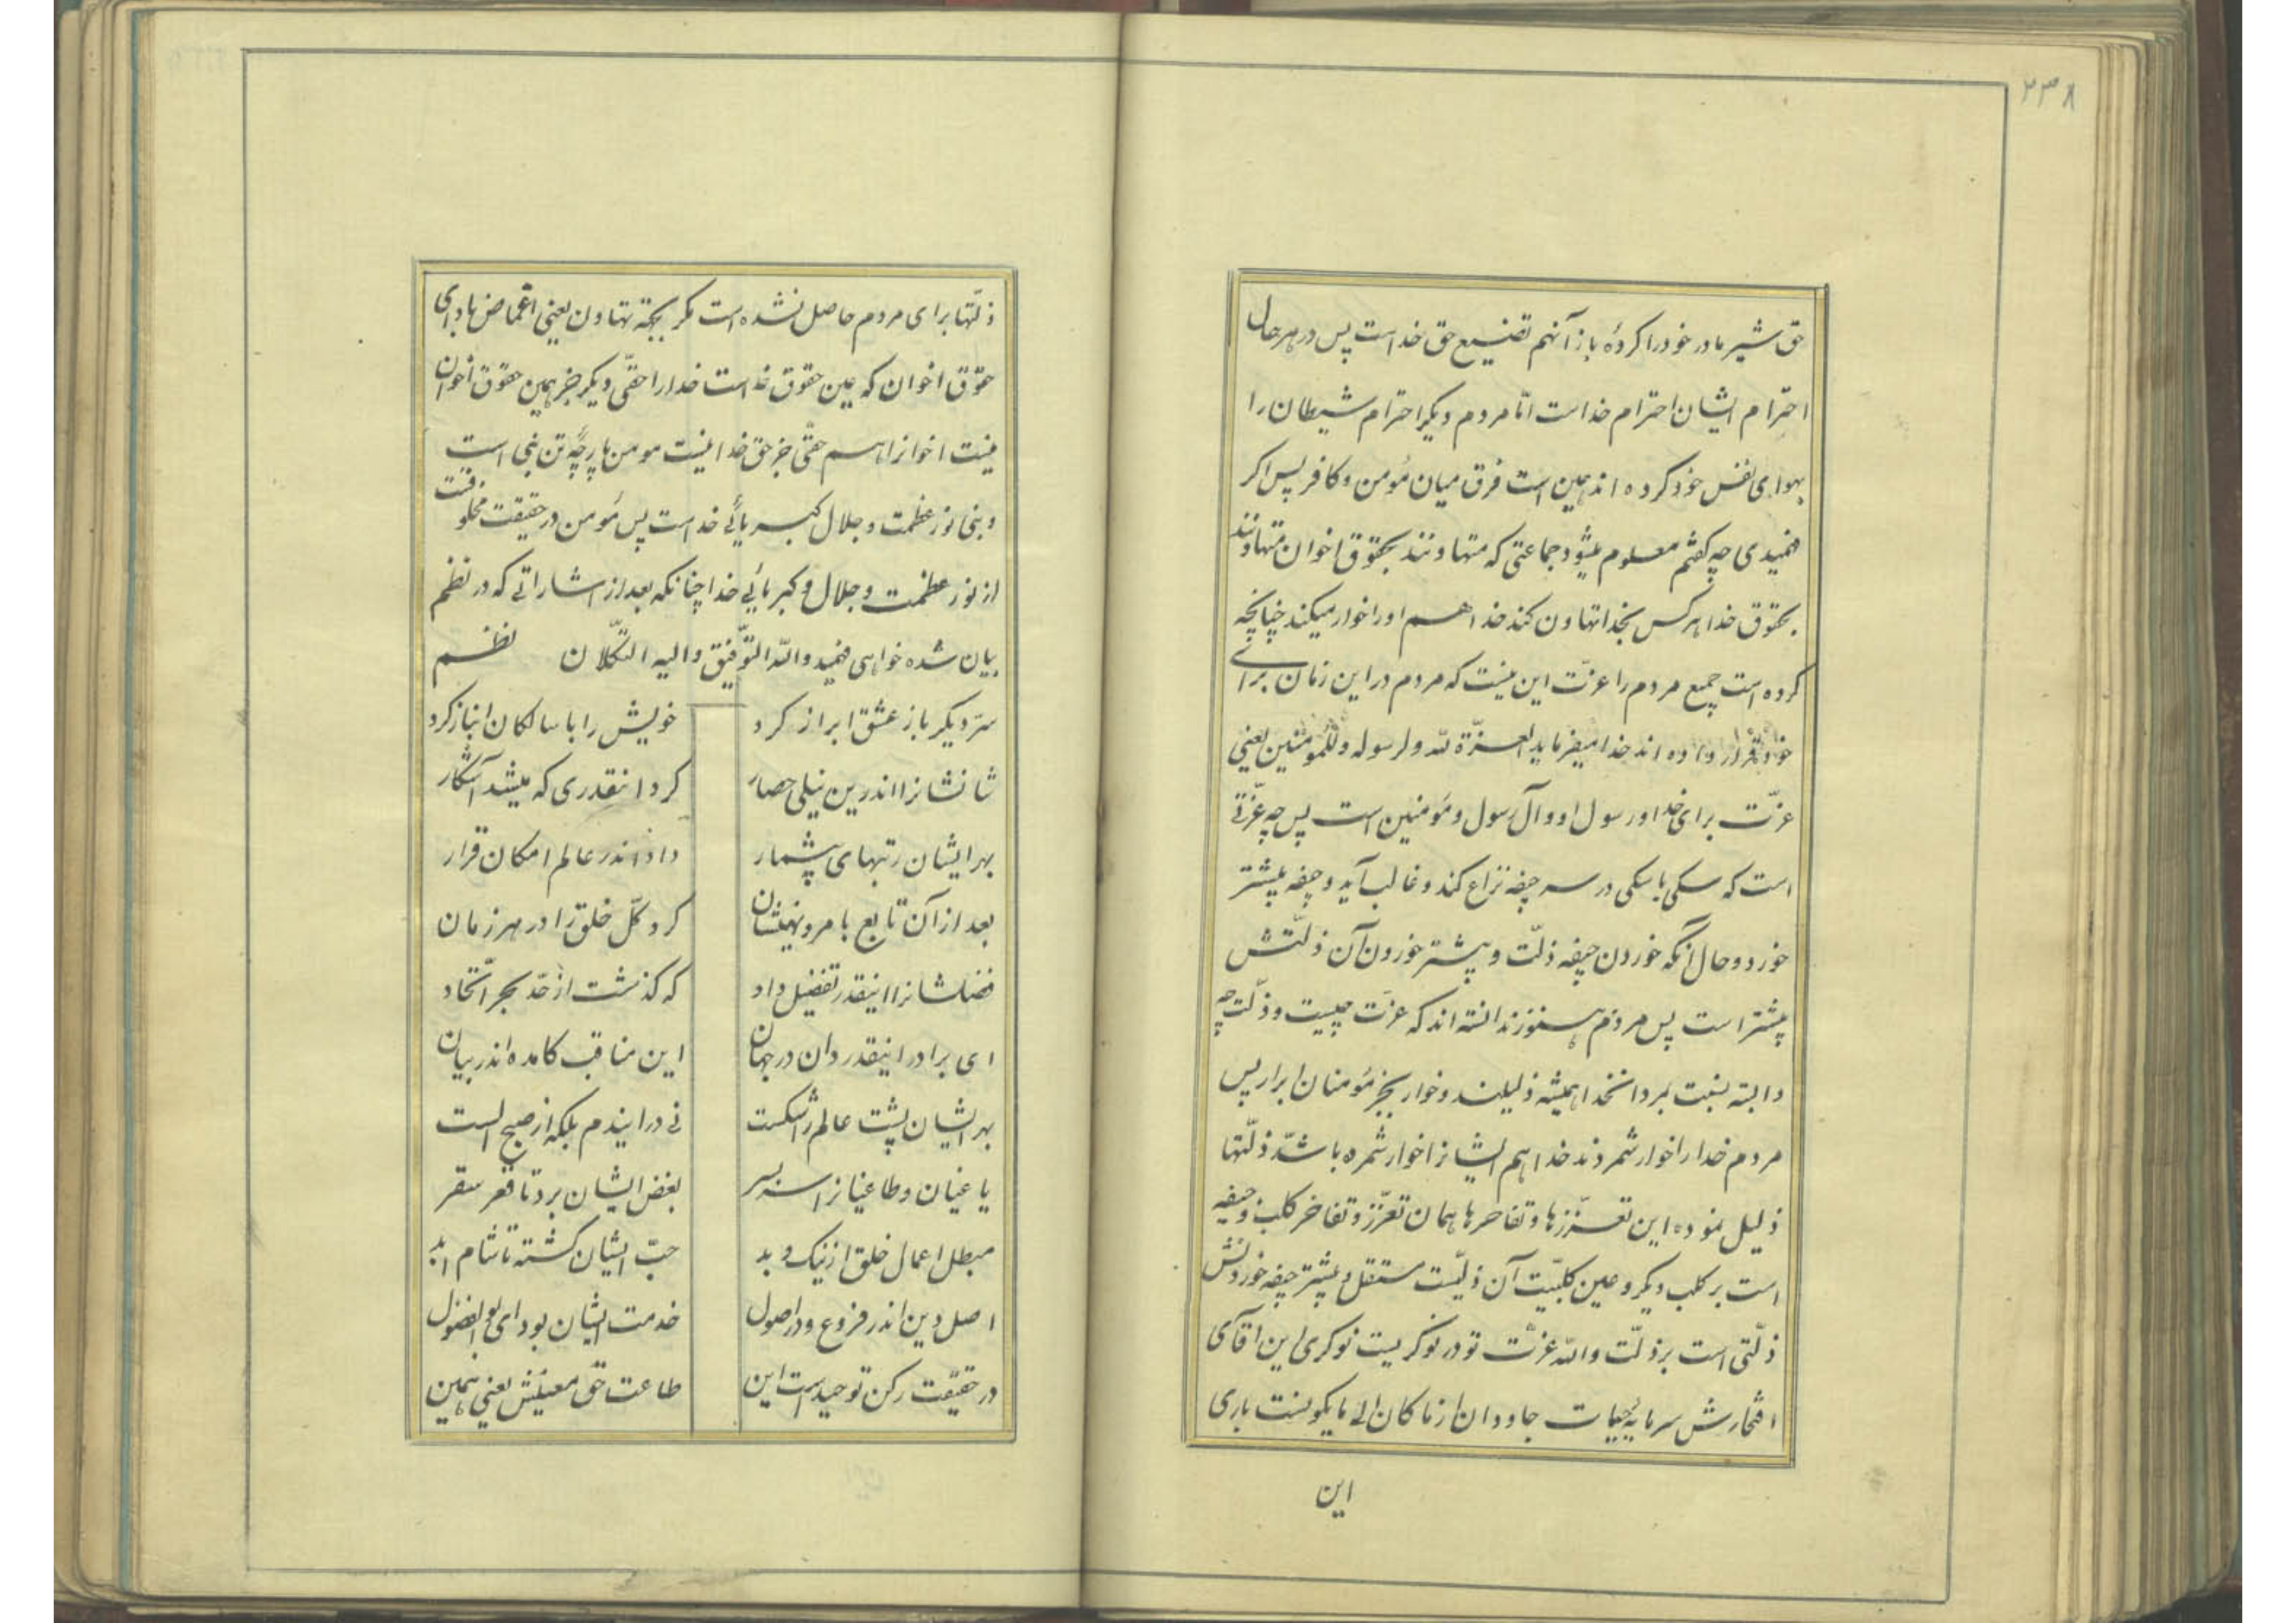 ۲۳۸
حق شیر مادر خود را کردهٔ باز آنهم تضییع حق خداست پس در هر حال
احترام ایشان احترام خداست امّا مردم دیگر احترام شیطان را
بهوای نفس خود کرده اند همین است فرق میان مؤمن و کافر پس اکر
فهمیدی چه کفتم معلوم میشود جماعتی که متهاونند بحقوق اخوان متهاونند
بحقوق خدا هر کس بخدا تهاون کند خدا هم او را خوار میکند چنانچه
کرده است جمیع مردم را عزّت این نیست که مردم در این زمان برای
خود قرار داده اند خدا میفرماید العزّة لله و لرسوله و للمومنین یعنی
عزّت برای خدا و رسول او و آل رسول و مؤمنین است پس چه عزّتی
است که سکی با سکی در سر جیفه نزاع کند و غالب آید و جیفه بیشتر
خورد و حال آنکه خوردن جیفه ذلّت و بیشتر خوردن آن ذلّتش
بیشتر است پس مردم هنوز ندانسته اند که عزّت چیست و ذلّت چه
دابته نسبت بمردان خدا همیشه ذلیلند و خوار بجز مؤمنان ابرار پس
مردم خدا را خوار شمردند خدا هم ایشانرا خوار شمرده باشدّ ذلّتها
ذلیل نموده این تعزّزها و تفاخرها همان تعزّز و تفاخر کلب و جیفه
است بر کلب دیکر و عین کلبیّت آن ذلّیست مستقل و بیشتر جیفه خوردنش
ذلّتی است بر ذلّت والله عزّت تو در نوکریست نوکری این آقای
افتخارش سرمایهٔ حیات جاودان از ما کان الی ما یکونست باری
این
ذلّتها برای مردم حاصل نشده است مکر بجهة تهاون یعنی اغماض با ادای
حقوق اخوان که عین حقوق خداست خدا را حقّی دیکر جز همین حقوق اخوان
نیست اخوانرا هم حقّی جز حق خدا نیست مومن پارچهٔ تن نبی است
و نبی نور عظمت و جلال کبریائی خداست پس مؤمن در حقیقت مخلوقست
از نور عظمت و جلال و کبریائی خدا چنانکه بعد از اشاراتی که در نظم
بیان شده خواهی فهمید والله التوّفیق و الیه التکّلان نظم
سرّ دیکر باز عشق ابراز کرد خویش را با سالکان انباز کرد
شانشانرا اندرین نیلی حصار کرد انقدری که میشد آشکار
بهر ایشان رتبهای بیشمار داد اندر عالم امکان قرار
بعد از آن تابع بامر و نهیشان کرد کلّ خلق را در هر زمان
فضلشانرا اینقدر تفضیل داد که کذشت از حّد بحر اتّحاد
ای برادر اینقدر دان در جهان این مناقب کامده اندر بیان
بهر ایشان پشت عالم را شکست نی در ایندم بلکه از صبح الست
یاغیان و طاغیانرا سر بسر بغض ایشان برد تا قعر سقر
مبطل اعمال خلق از نیک و بد حبّ ایشان کشته تا شام ابد
اصل دین اندر فروع و در اصول خدمت ایشان بود ای بو الفضول
در حقیقت رکن توحید است این طاعت حق معنیش یعنی همین